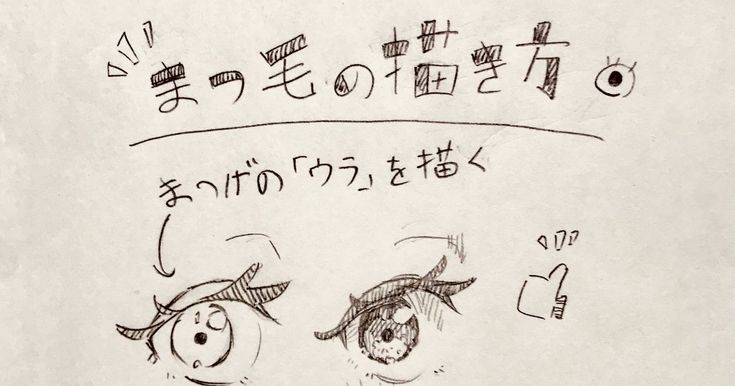 まつ毛の描き方。
まつげの「ウラ」を描く